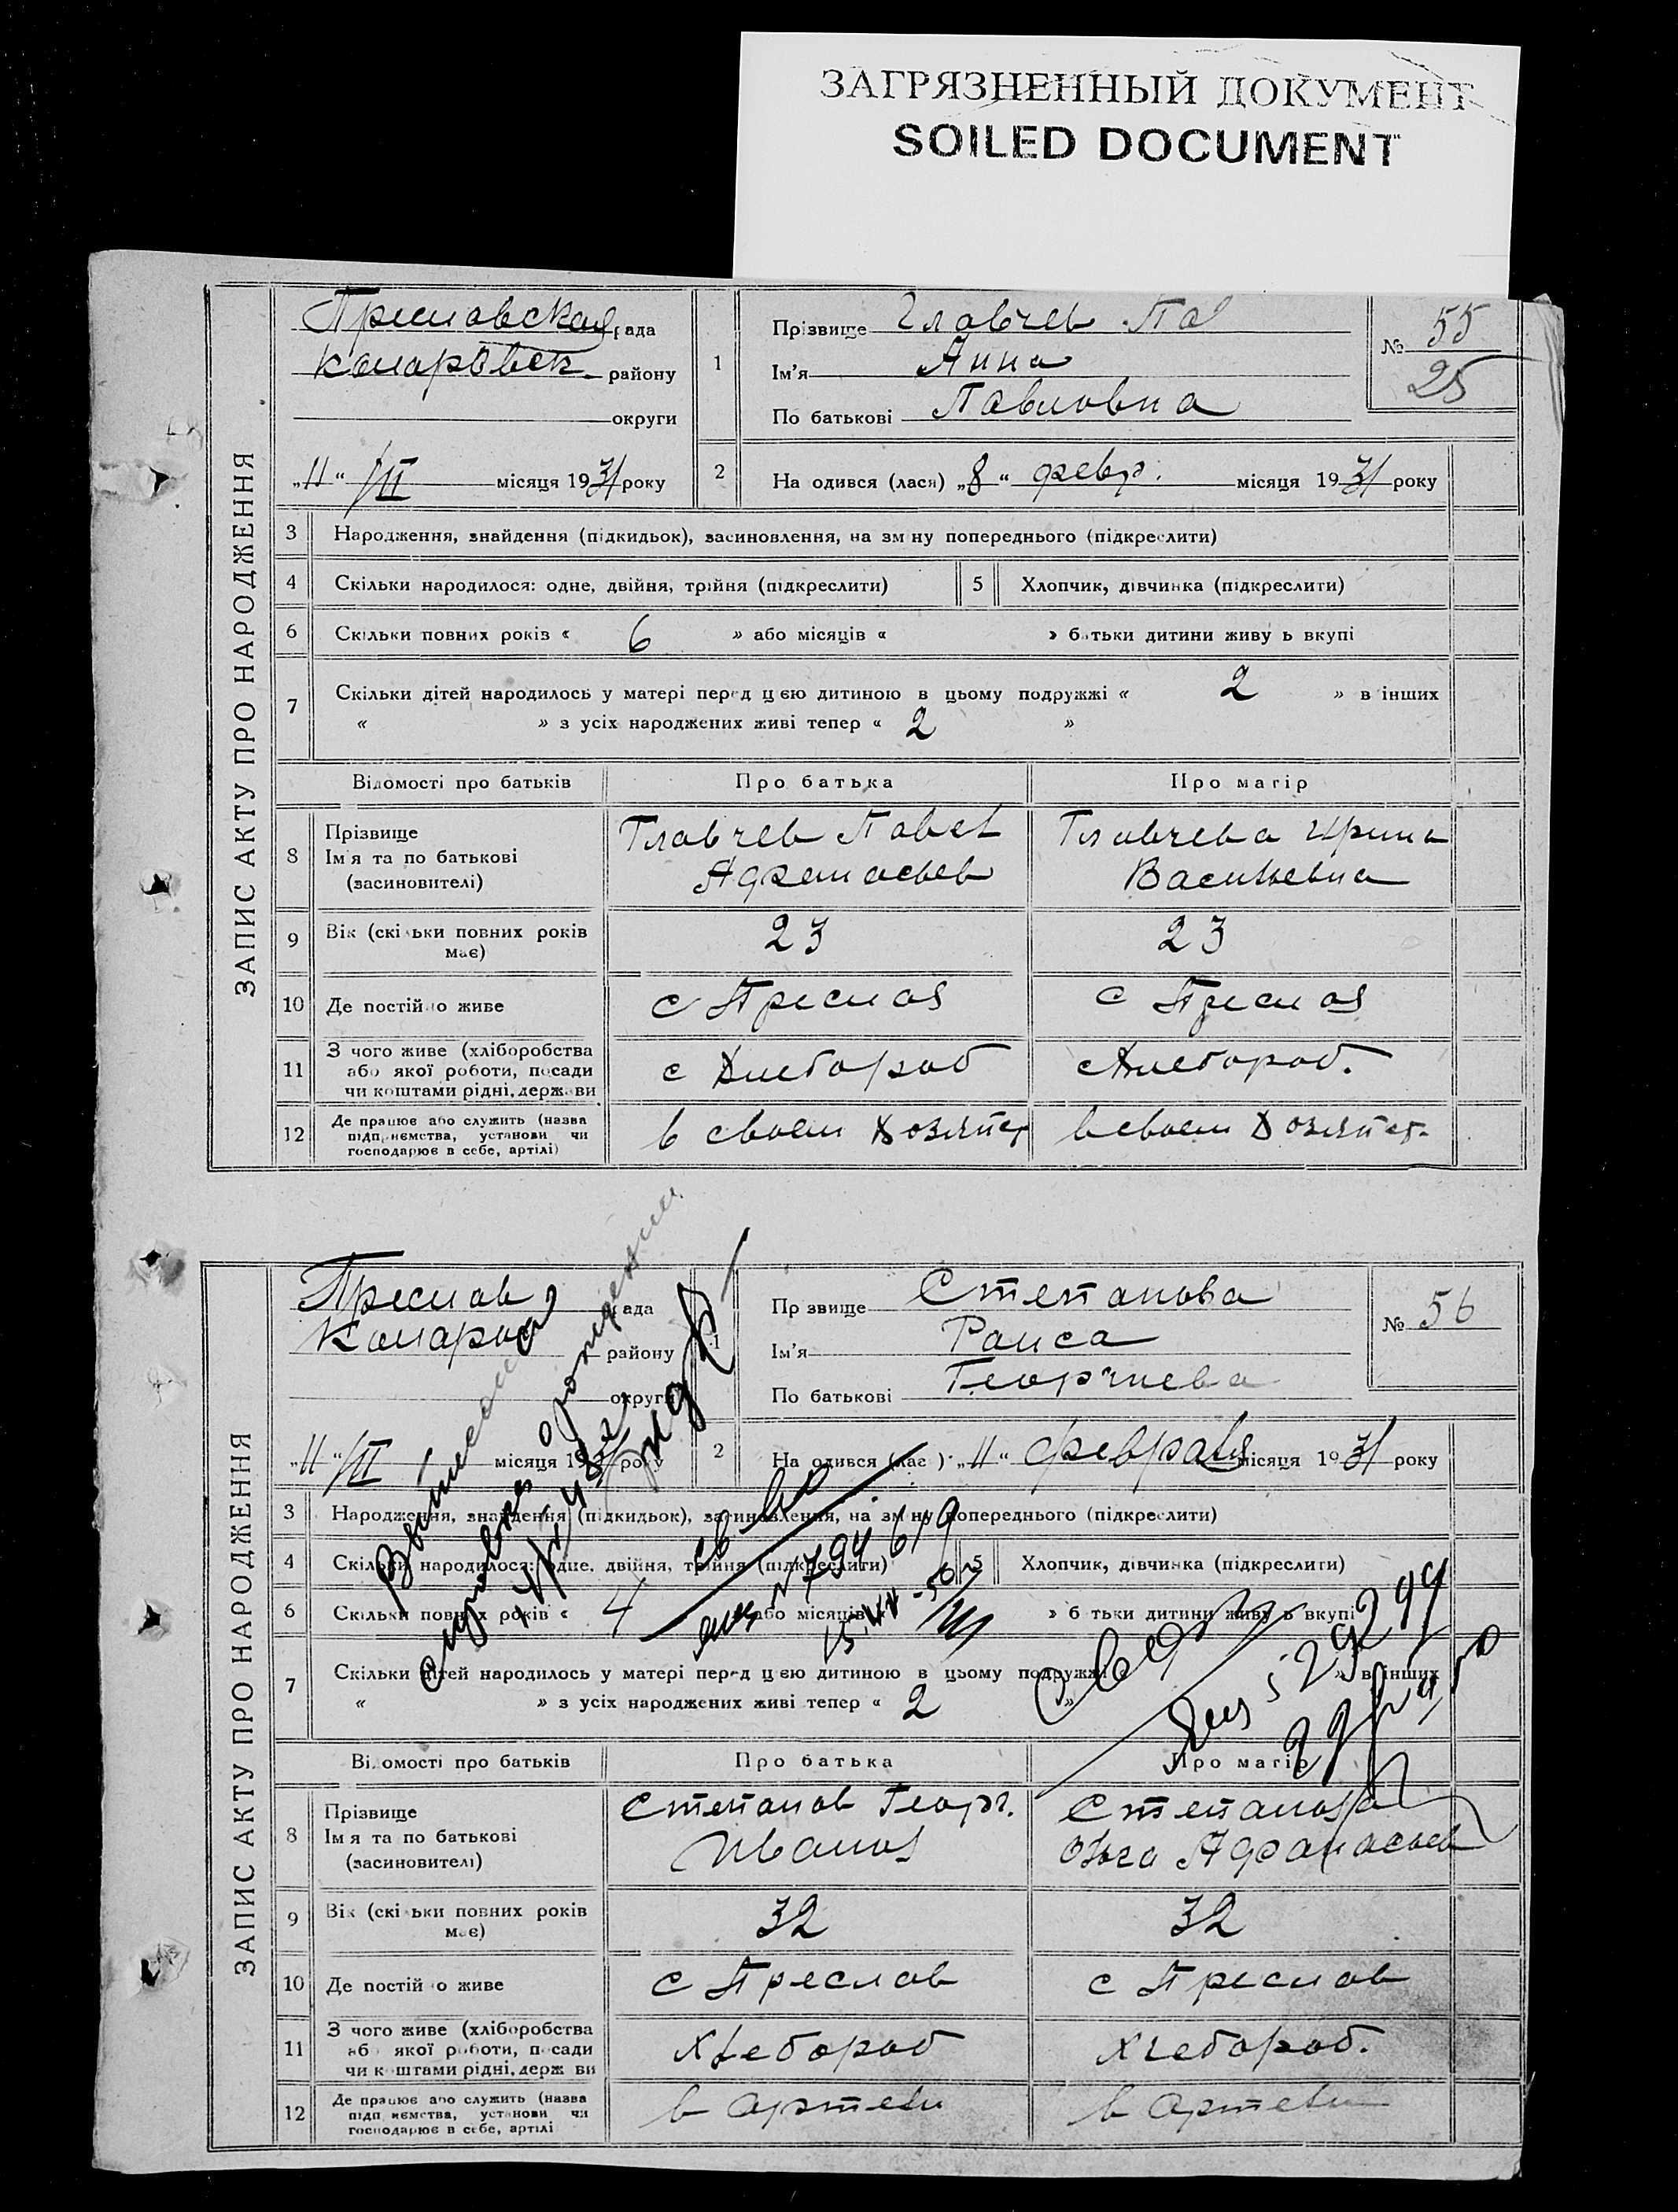 ЗАГРЯЗНЕННЫЙ ДОКУМЕНТ
SOILED DOCUMENT
ЗАПИС АКТУ ПРО НАРОДЖЕННЯ
Преславская рада
Коларовск. району
округи
1
Прізвище Главчев Пав
Ім'я Анна
По батькові Павловна
№ 55
25
„11“ /III місяця 1931 року
2 На одився (лася) „8“ февр. місяця 1931 року
3 Народження, знайдення (підкидьок), засиновлення, на зм ну попереднього (підкреслити)
4 Скільки народилося: одне, двійня, трійня (підкреслити) 5 Хлопчик, дівчинка (підкреслити)
6 Скільки повних років « 6 » або місяців « » батьки дитини живу ь вкупі
7 Скільки дітей народилось у матері перед цією дитиною в цьому подружжі « 2 » в інших
« » з усіх народжених живі тепер « 2 »
Відомості про батьків Про батька Про матір
8 Прізвище
Ім'я та по батькові
(засиновителі)
Главчев Павел
Афанасьев
Главчева Ирина
Васильевна
9 Вік (скільки повних років має) 23 23
10 Де постійно живе с Преслав с Преслав
11 З чого живе (хліборобства
або якої роботи, посади
чи коштами рідні, держави
с Хлебороб с Хлебороб.
12 Де працює або служить (назва
підприємства, установи чи
господарює в себе, артілі)
в своем Хозяйст в своем Хозяйст.
ЗАПИС АКТУ ПРО НАРОДЖЕННЯ
Преслав рада
Коларов району
округи
1
Пр звище Степанова
Ім'я Раиса
По батькові Георгиева
№ 56
„11“ /III місяця 1931 року
2 На одився (лас ) „11“ февраля місяця 1931 року
3 Народження, знайдення (підкидьок), засиновлення, на зм ну попереднього (підкреслити)
4 Скільки народилося: одне, двійня, трійня (підкреслити) 5 Хлопчик, дівчинка (підкреслити)
6 Скільки повних років « 4 або місяців » б тьки дитини живу ь вкупі
7 Скільки дітей народилось у матері перед цією дитиною в цьому подружжі » в інших
« » з усіх народжених живі тепер « 2 »
Ві омості про батьків Про батька Про матір
8 Прізвище
Ім'я та по батькові
(засиновителі)
Степанов Георг.
Иванов
Степанова
Ольга Афанасьев
9 Вік (скі ьки повних років має) 32 32
10 Де постій о живе с Преслав с Преслав
11 З чого живе (хліборобства
або якої роботи, посади
чи коштами рідні, держ ви
Хлебороб Хлебороб.
12 Де працює або служить (назва
підп иємства, установи чи
господарює в себе, артілі
в Артели в Артели